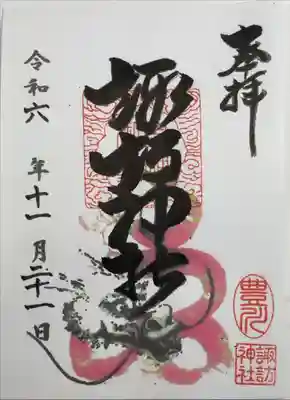 奉拝
諏訪神社
令和六年十一月二十一日
諏訪
神社